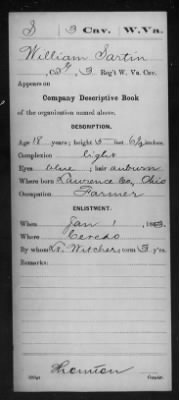 S 3 Cav. W.Va.
William Sartin
Co. G, 3 Reg't W. Va. Cav.
Appears on
Company Descriptive Book
of the organization named above.
DESCRIPTION.
Age 18 years; height 5 feet 6½ inches.
Complexion light
Eyes blue; hair auburn
Where born Lawrence Co, Ohio
Occupation Farmer
ENLISTMENT.
When Jan 1, 1863.
Where Ceredo
By whom Lt. Witcher; term 3 y'rs.
Remarks:
Thornton
Copyist.